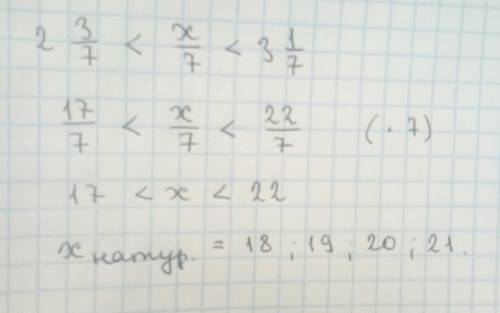 2 3/7 < x/7 < 3 1/7
17/7 < x/7 < 22/7 (· 7)
17 < x < 22
x натур. = 18 ; 19 ; 20 ; 21.